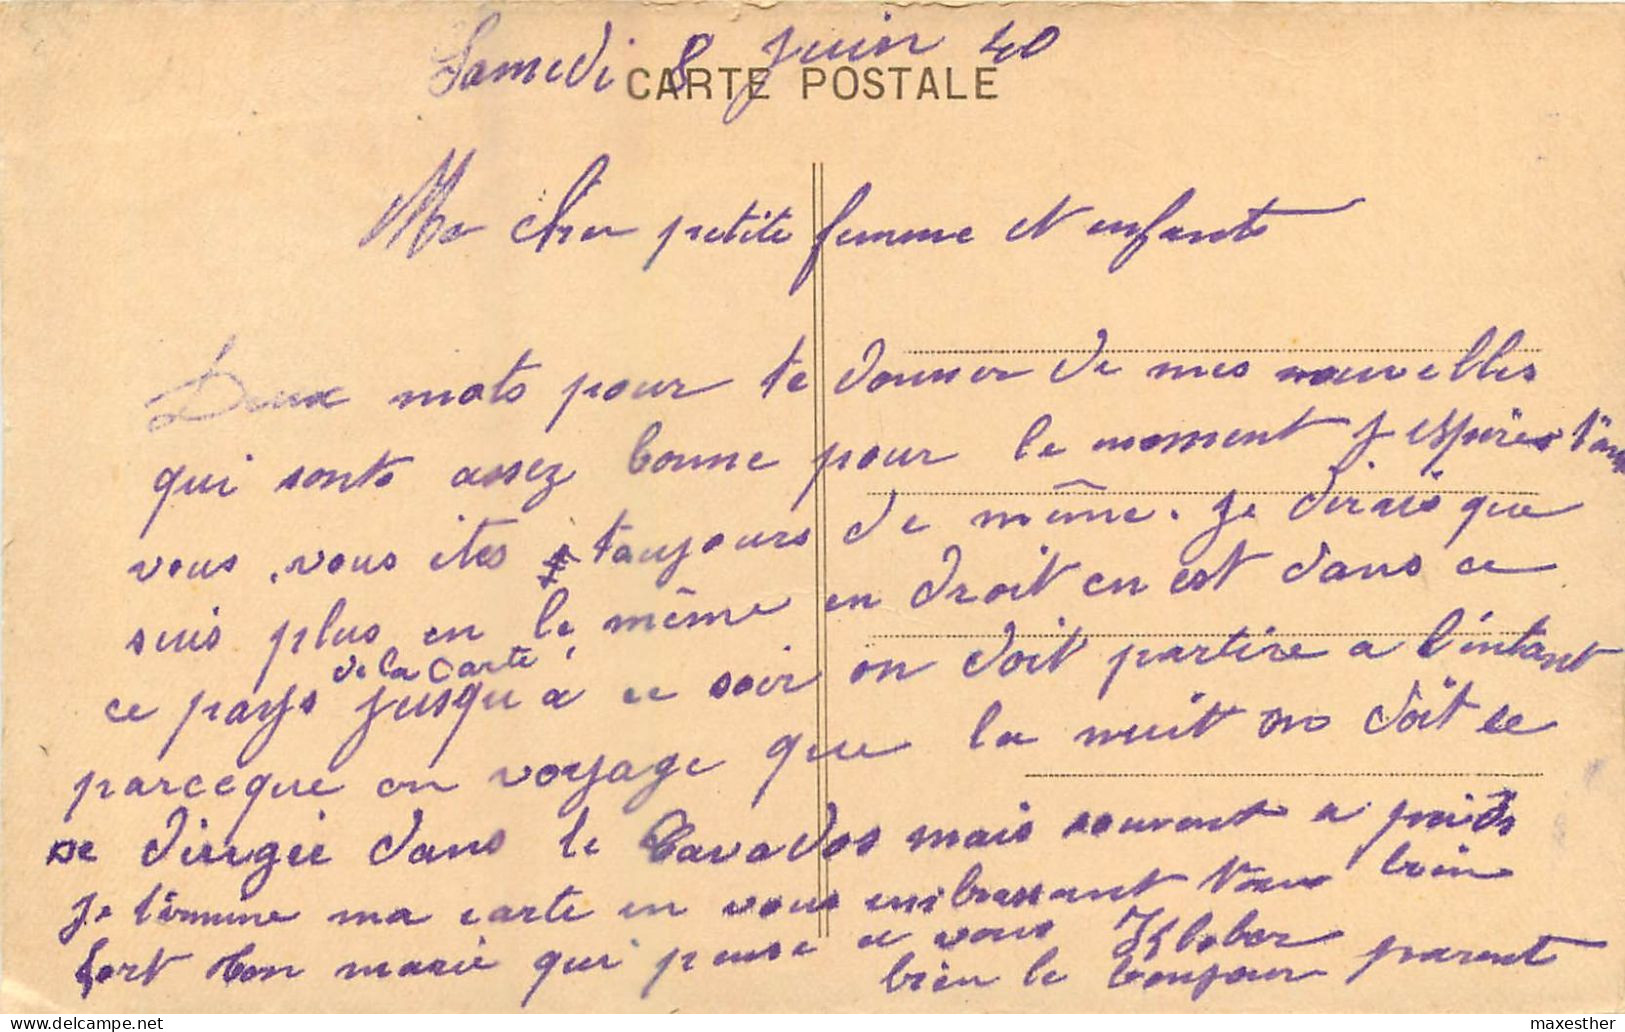 Samedi 8 Juin 40
CARTE POSTALE
Ma cher petite femme et enfants
Deux mots pour te donner de mes nouvelles
qui sonts assez bonne pour le moment j espères
vous, vous êtes toujours de même. Je dirais que
suis plus en le même en droit en est dans ce
de la carte
ce pays jusqu a ce soir on doit partire a l'intant
parceque on voyage que la nuit on doit ce
se dirigée dans le Cavados mais souvent a pieds
Je termine ma carte en vous embrassant tous bien
fort ton marie qui pense a vous Kleber
bien le bonjour parent
delcampe.net
maxesther